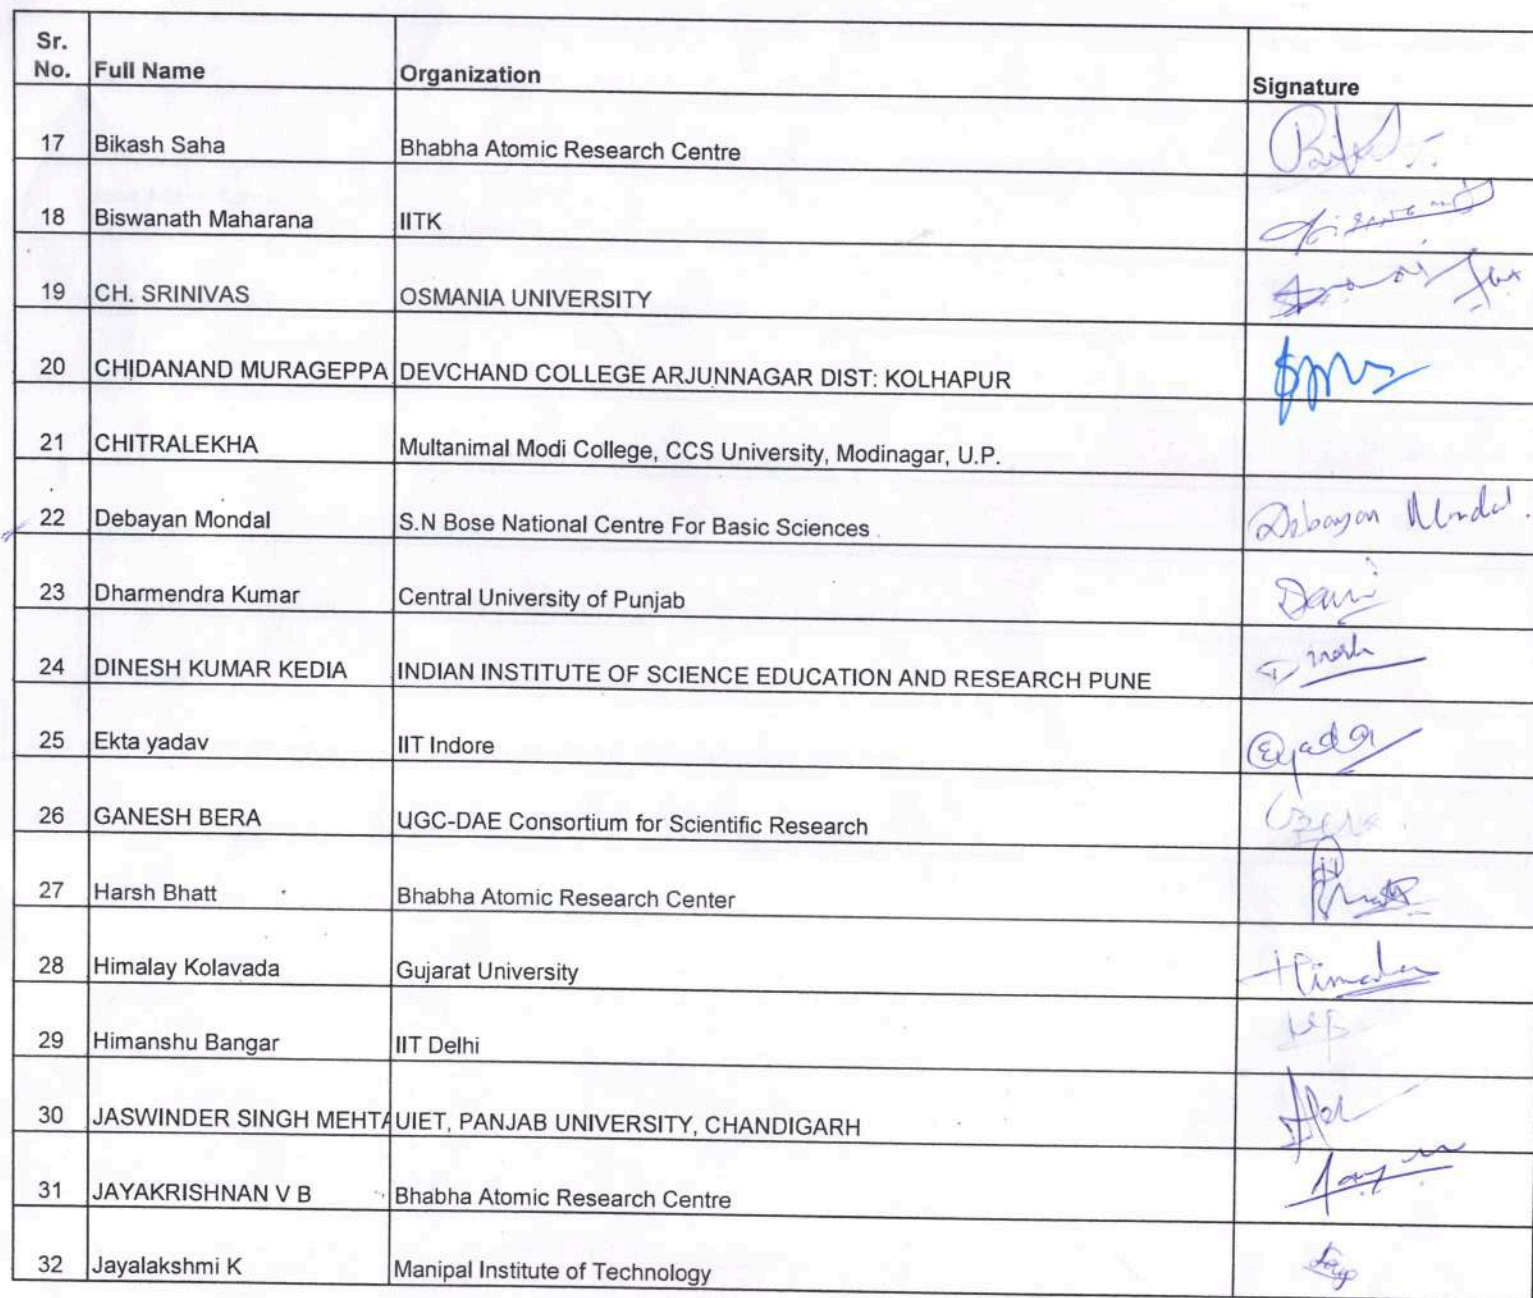 Sr. No. Full Name Organization Signature
17 Bikash Saha Bhabha Atomic Research Centre
18 Biswanath Maharana IITK
19 CH. SRINIVAS OSMANIA UNIVERSITY
20 CHIDANAND MURAGEPPA DEVCHAND COLLEGE ARJUNNAGAR DIST: KOLHAPUR
21 CHITRALEKHA Multanimal Modi College, CCS University, Modinagar, U.P.
22 Debayan Mondal S.N Bose National Centre For Basic Sciences Debayan Mondal.
23 Dharmendra Kumar Central University of Punjab
24 DINESH KUMAR KEDIA INDIAN INSTITUTE OF SCIENCE EDUCATION AND RESEARCH PUNE Dinesh
25 Ekta yadav IIT Indore
26 GANESH BERA UGC-DAE Consortium for Scientific Research
27 Harsh Bhatt Bhabha Atomic Research Center
28 Himalay Kolavada Gujarat University
29 Himanshu Bangar IIT Delhi HB
30 JASWINDER SINGH MEHTA UIET, PANJAB UNIVERSITY, CHANDIGARH
31 JAYAKRISHNAN V B Bhabha Atomic Research Centre
32 Jayalakshmi K Manipal Institute of Technology